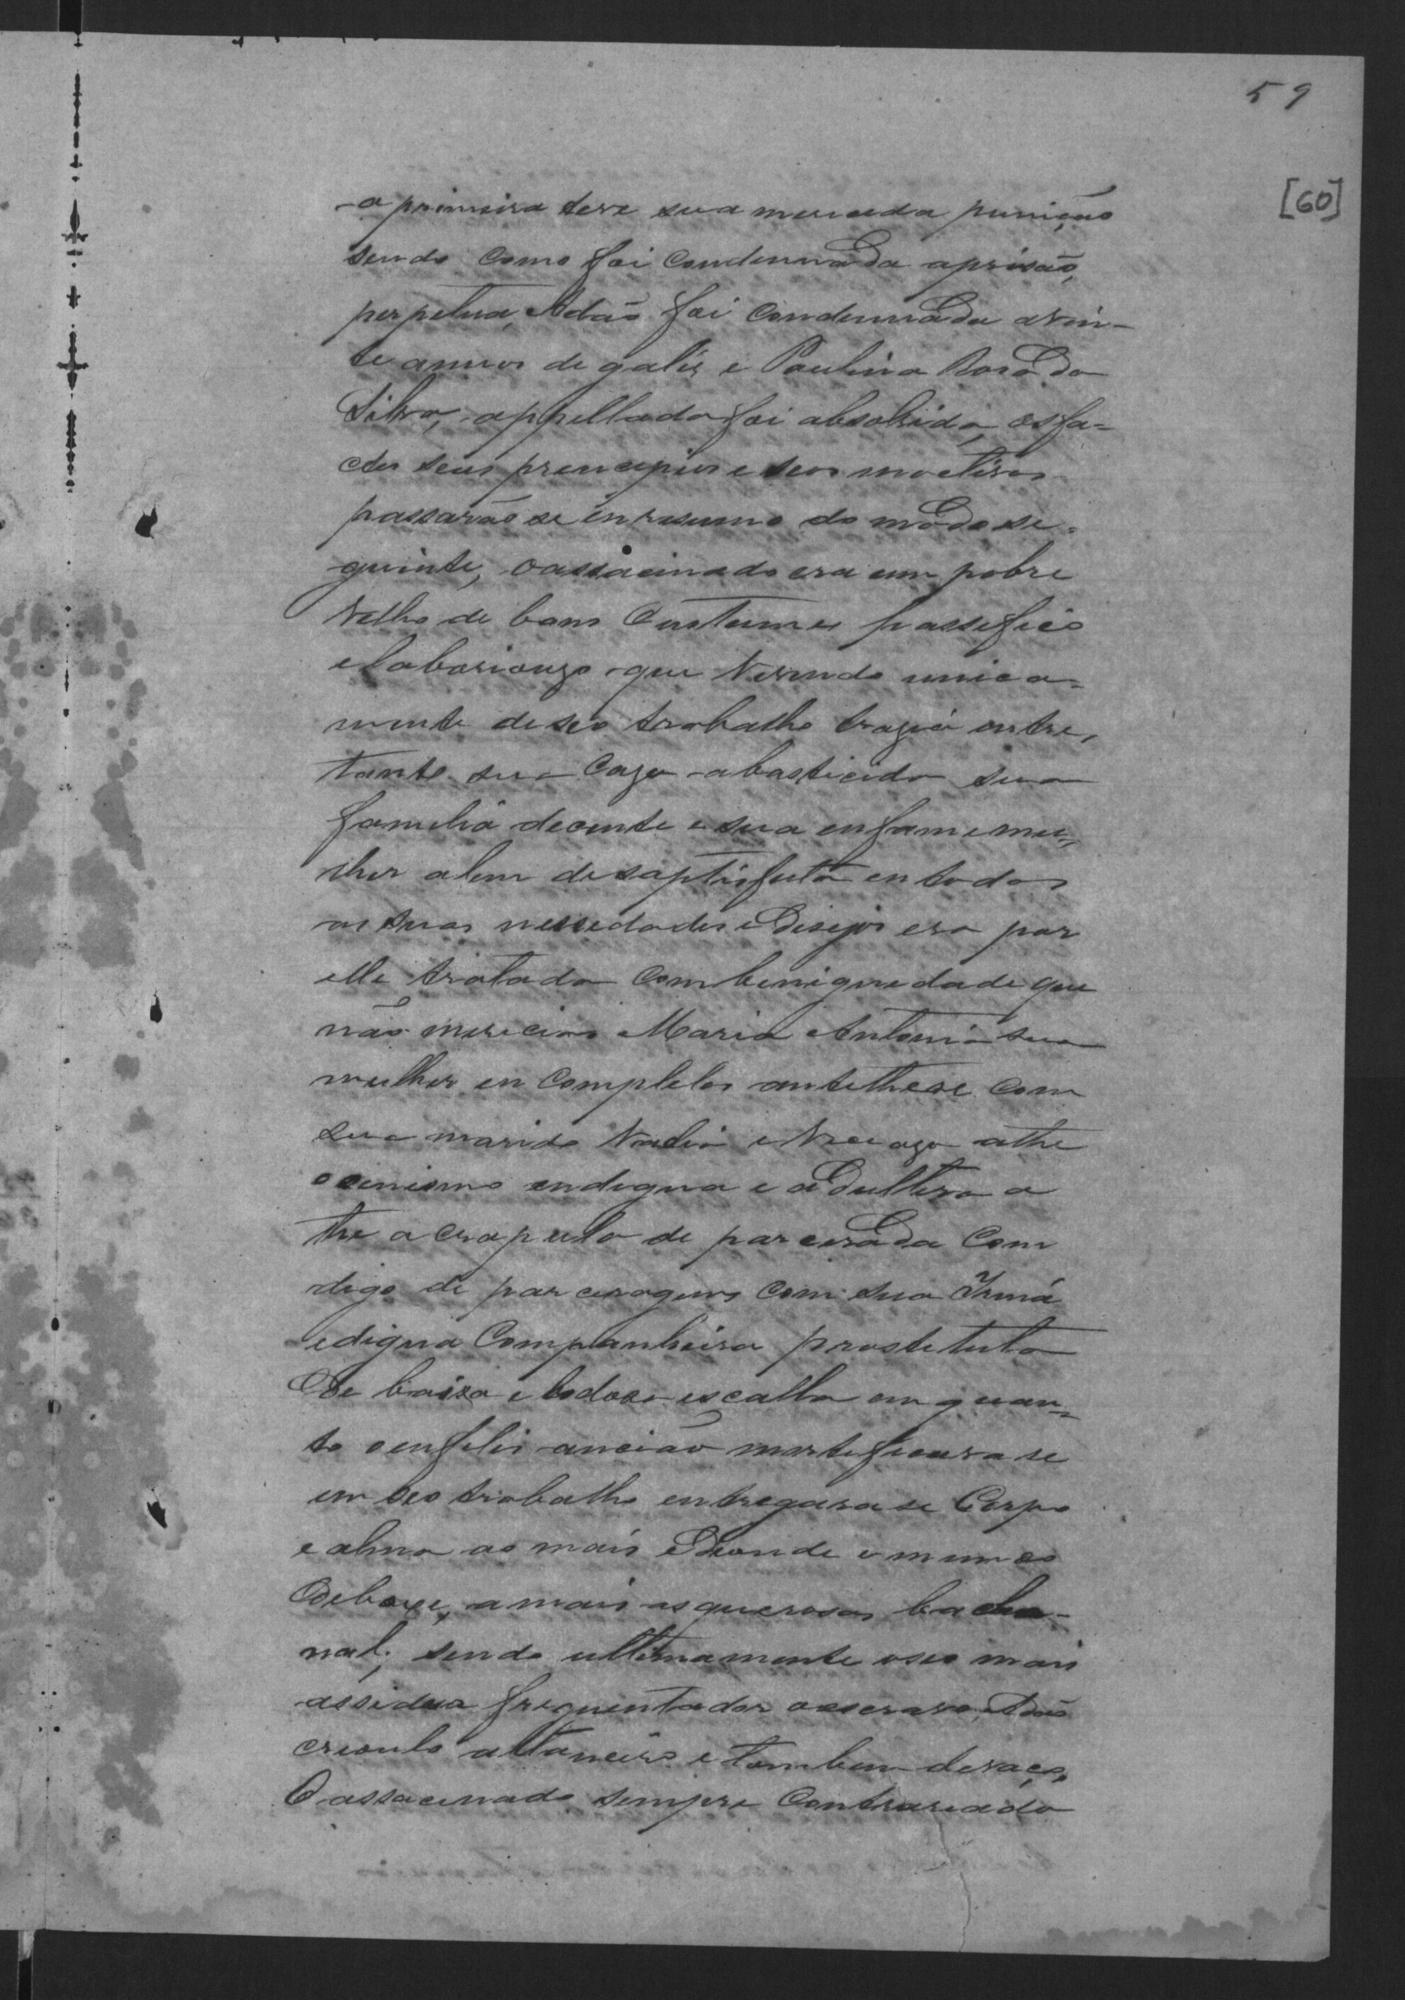 59
[60]
a primeira teve sua merecida punição
sendo como foi condemnada aprisão
perpetua, Adão foi condemnado avin-
te annos de galés e Paulina Rosa da
Silva, appellada foi absolvida, osfa-
ctos seus principios e seos motivos
passarão se en resumo do modo se-
guinte, oassacinado era um pobre
velho de bons Custumes passifico
elaboriozo que vivendo unica-
mente deseo trabalho trazia entre,
tanto sua Caza abastecida sua
familia decente e sua enfame mu-
lher alem de saptisfeita en todas
as suas nessedades e Desejos era por
elle tratada Com beniguedade que
não merecia Maria Antonia sua
mulher en Completa antithese com
seu marido vadia e athe
ocinismo endigna e aDultera a
the a crapula de parceirada Com
digo de parceragem Com sua Irmã
edigna Companheira prostetuta
De baixa e lodoza escalla em quan-
to oenfelis ancião marteficava se
em seo trabalho entregava se Corpo
e alma ao mais e immundo
Deboxe, amais asquerosa bacha-
nal, sendo ultimamente oseo mais
assiduo frequentador oescravo Adão
crioulo altaneiro e tambem devaço,
O assacinado sempre Contrariado